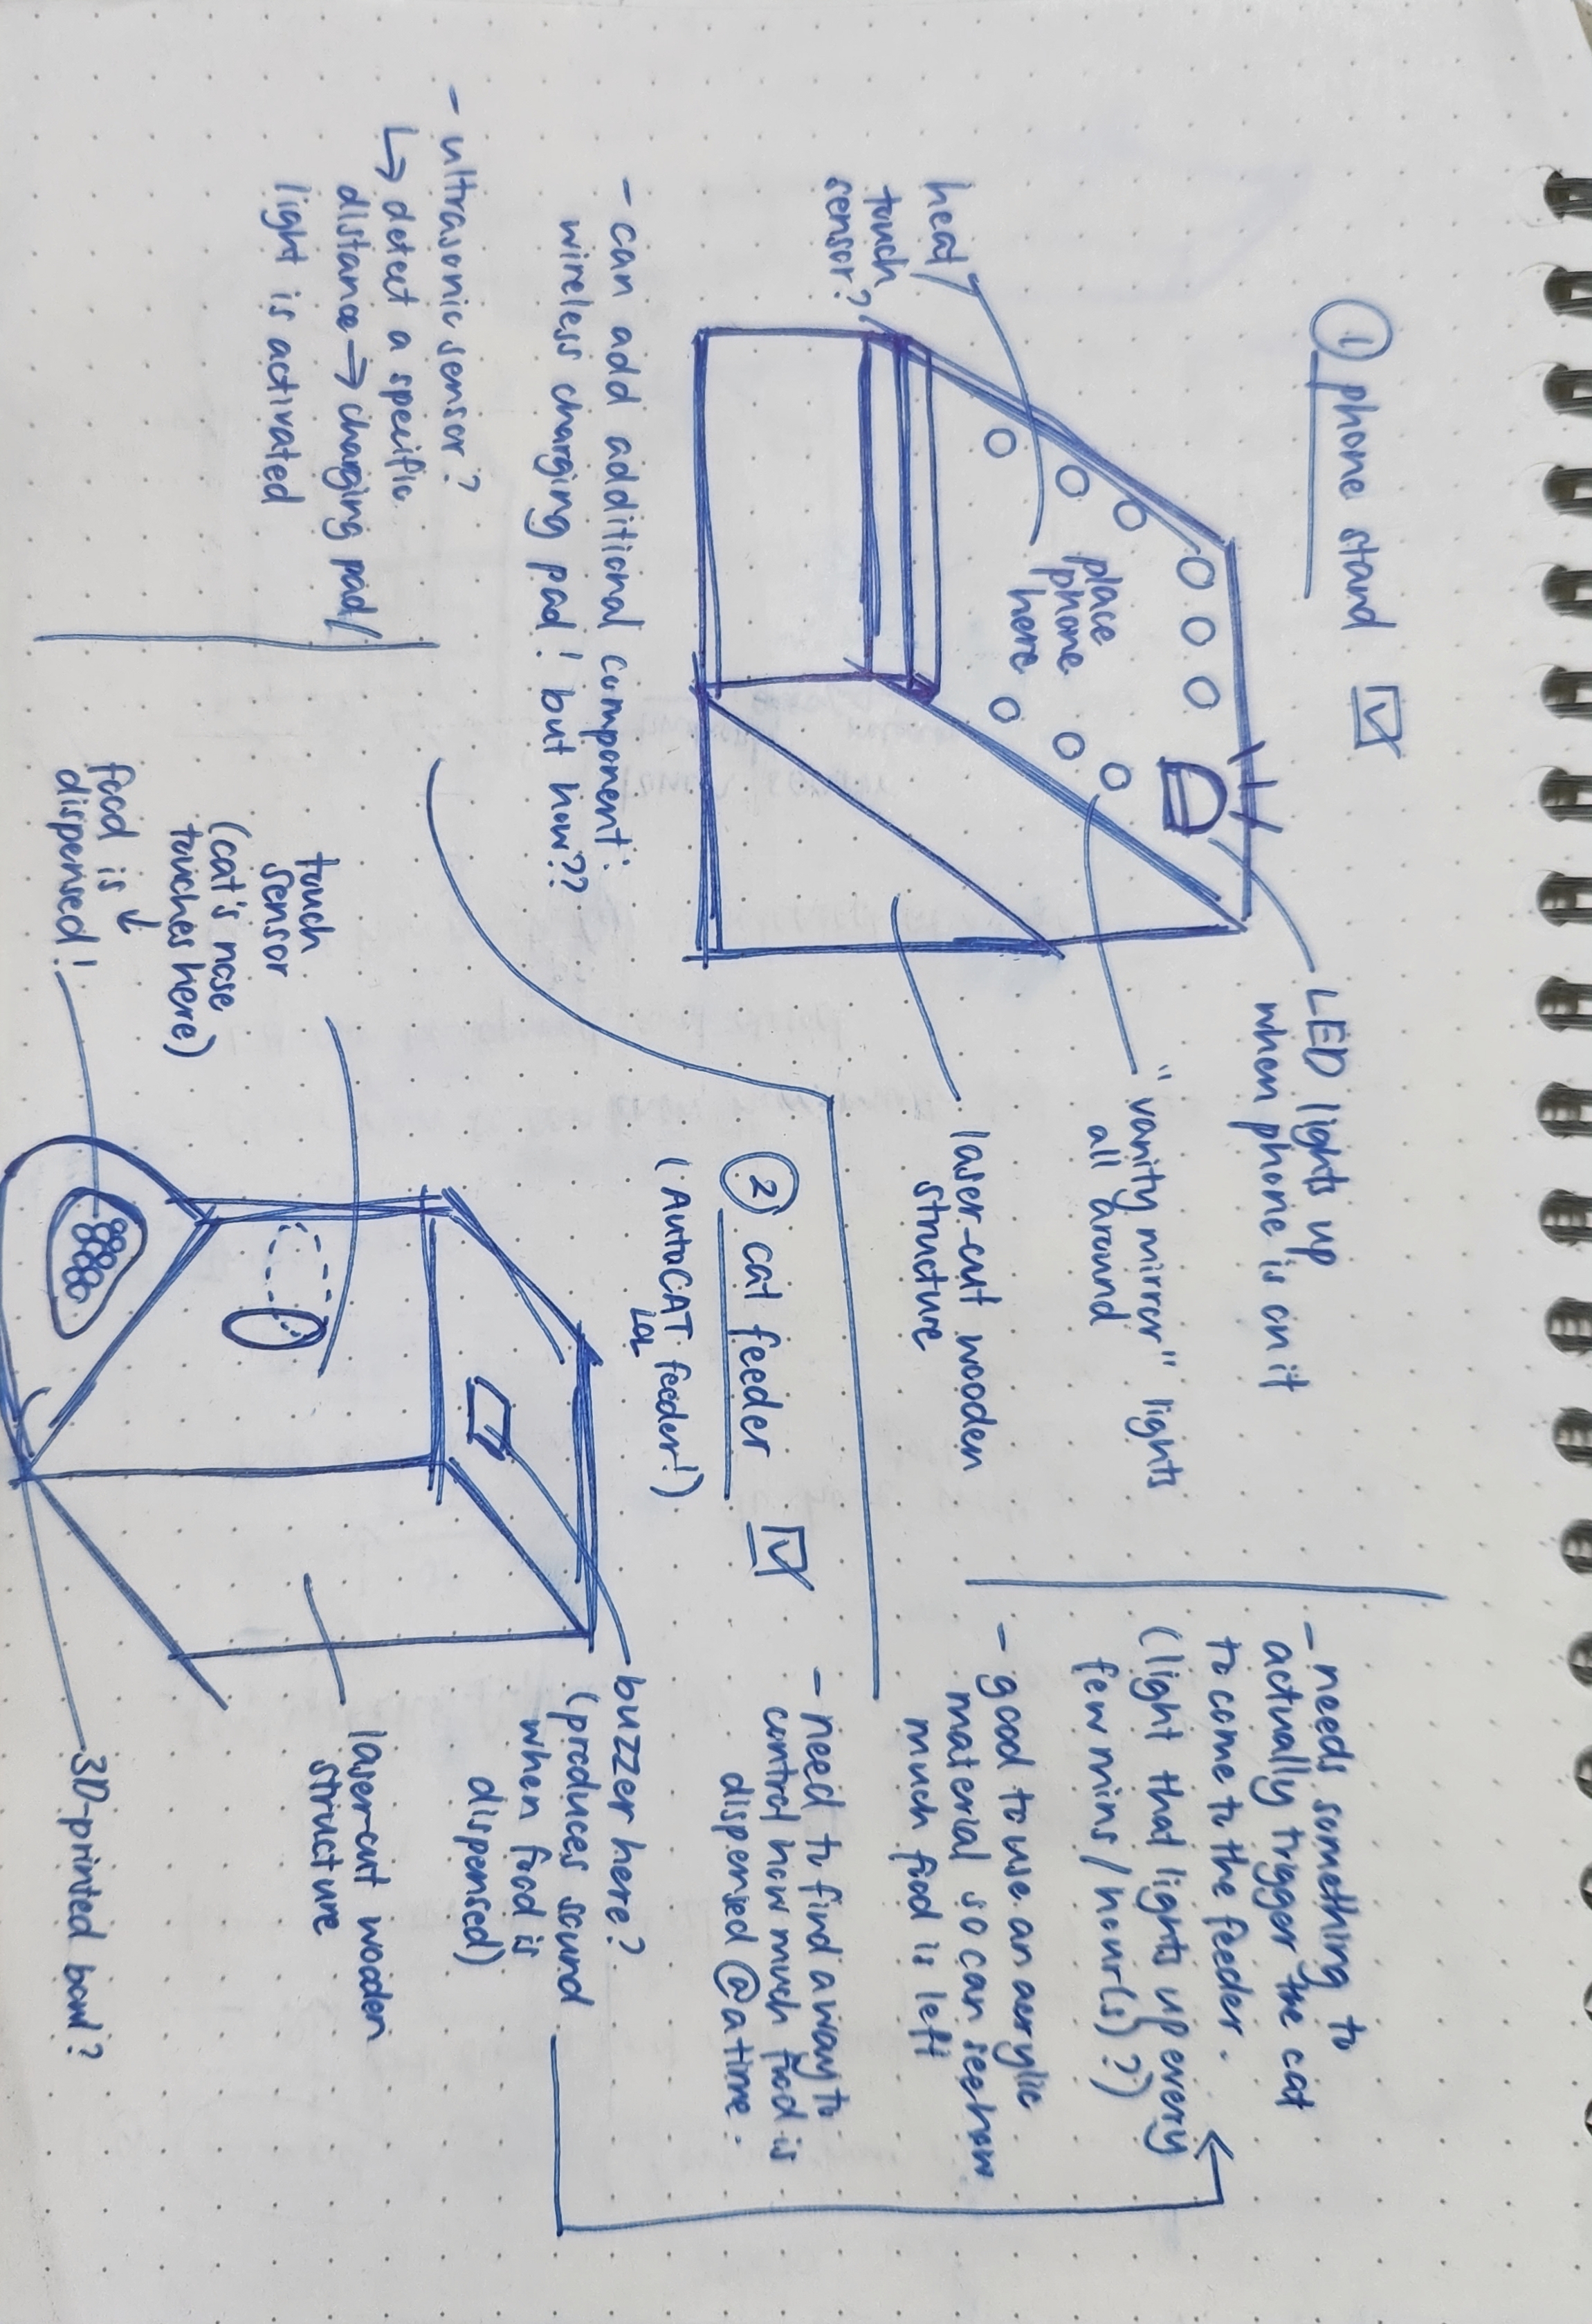 ① phone stand
LED lights up
when phone is on it
"vanity mirror" lights
all around
place
phone
here
laser-cut wooden
structure
heat/
touch
sensor?
- can add additional component:
wireless charging pad! but how??
- ultrasonic sensor?
↳ detect a specific
distance → charging pad/
light is activated
- needs something to
actually trigger the cat
to come to the feeder.
(light that lights up every
few mins / hour(s)?)
- good to use an acrylic
material so can see how
much food is left
- need to find a way to
control how much food is
dispensed @ a time.
② cat feeder
(AutoCAT feeder!)
LOL
buzzer here?
(produces sound
when food is
dispensed)
laser-cut wooden
structure
touch
sensor
(cat's nose
touches here)
↓
food is
dispensed!
3D-printed bowl?